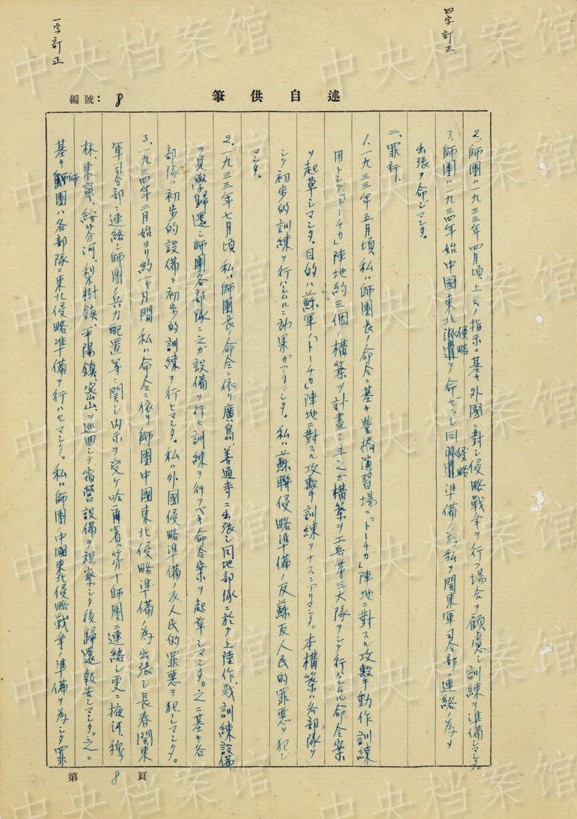 四字訂正
一字訂正
筆供自述
編號：8
2. 師團ハ一九三三年四月頃上ノ指示ニ基キ外國ニ對シ侵略戰爭ヲ行フ場合ヲ顧慮シ訓練ヲ準備シマシタ。
3. 師團ハ一九三四年始中國東北侵略派遣ヲ命ゼラレ同侵略準備ノ為私ヲ關東軍司令部ニ連絡ノ為メ
出張ヲ命ジマシタ。
二、罪行、
1. 一九三三年五月頃私ハ師團長ノ命令ニ基キ豐橋演習場ニ「トーチカ」陣地ニ對スル攻擊動作訓練
用トシテ「トーチカ」陣地約三個ノ構築ヲ計畫シ之ガ構築ヲ工兵第三大隊ヲシテ行ハシムル命令案
ヲ起草シマシタ。目的ハ蘇軍ノ「トーチカ」陣地ニ對スル攻擊訓練ヲナスニアリマシタ。本構築ハ各部隊ヲ
シテ初步的訓練ヲ行ハシムルニ效果ガアリマシタ。私ハ蘇聯侵略準備ノ反蘇反人民的罪悪ヲ犯シ
マシタ。
2. 一九三三年七月頃私ハ師團長ノ命令ニ依リ廣島、善通寺ニ出張シ同地部隊ニ於テ上陸作戰訓練設備
ヲ見學歸還シ師團各部隊ニ之ガ設備ヲ行ヒ訓練ヲ行フベキ命令案ヲ起草シマシタ。之ニ基キ各
部隊ハ初步的設備ト初步的訓練ヲ行ヒマシタ。私ハ外國侵略準備ノ反人民的罪悪ヲ犯シマシタ。
3. 一九三四年二月始ヨリ約一ヶ月間私ハ命令ニ依リ師團中國東北侵略準備ノ為出張シ長春關東
軍司令部ニ連絡シ師團ノ兵力配置等ニ関シ内示ヲ受ケ哈爾賓第十師團ニ連絡シ更ニ掖河、穆
林、東寧、綏芬河、梨樹鎮、平陽鎮、密山ヲ巡回シテ宿營設備ヲ視察シタ後歸還報告シマシタ。之ニ
基キ師團ハ各部隊ニ東北侵略準備ヲ行ハセマシタ。私ハ師團ノ中國東北侵略戰爭ノ準備ヲ為シタ罪
第8頁
中央档案馆